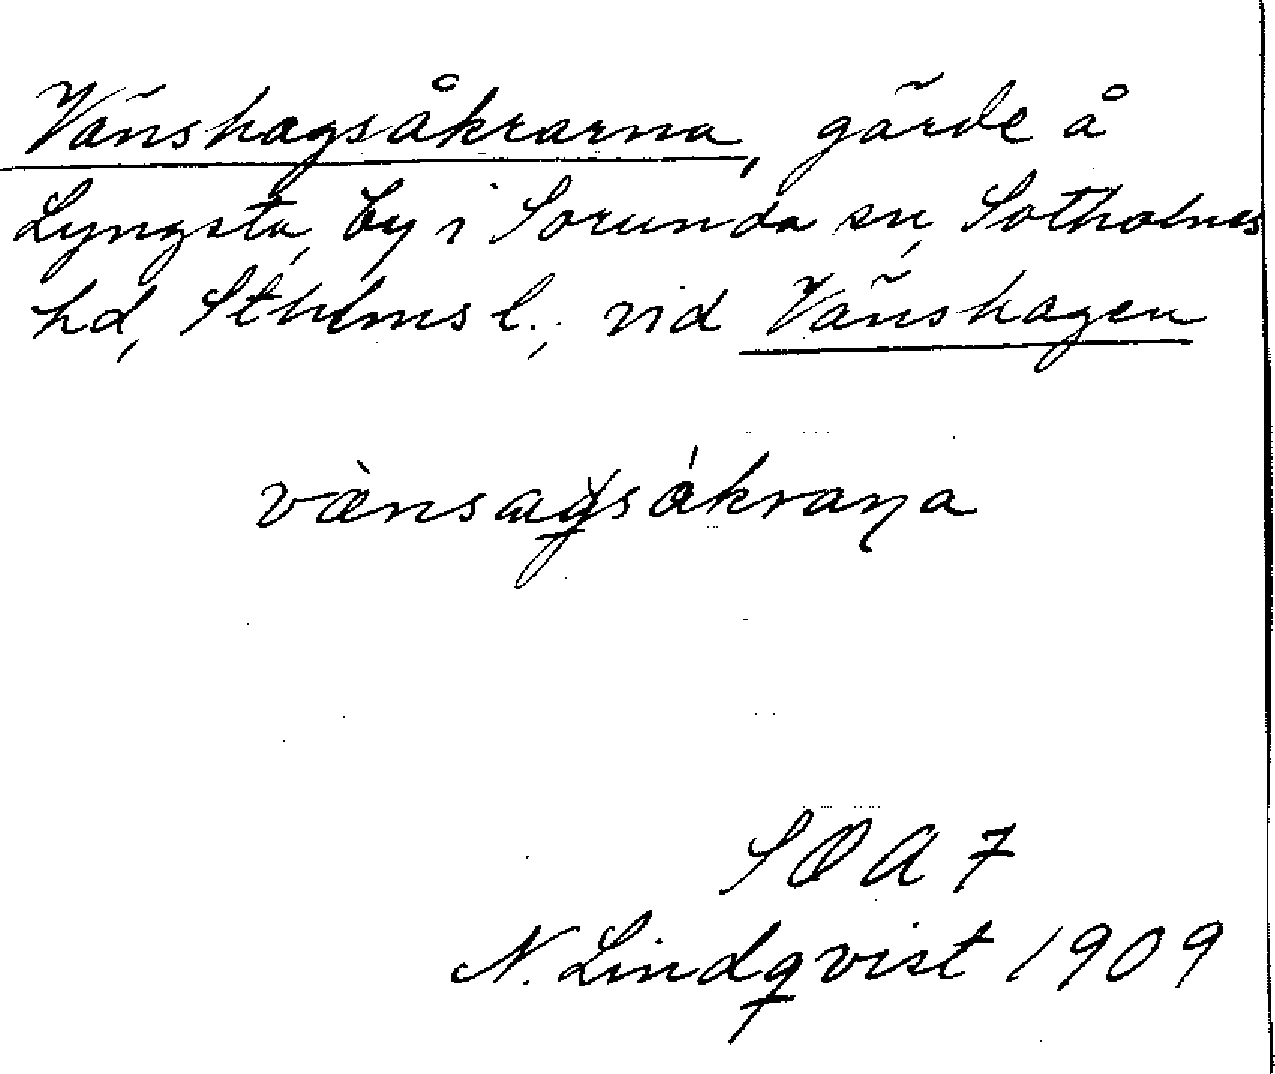 Vänshagsåkrarna, gärde å
Lyngsta, by i Sorunda sn, Sotholms
hd, Sthlms l.; vid Vänshagen
vænsagsåkraṇa
SOA 7
N. Lindqvist 1909